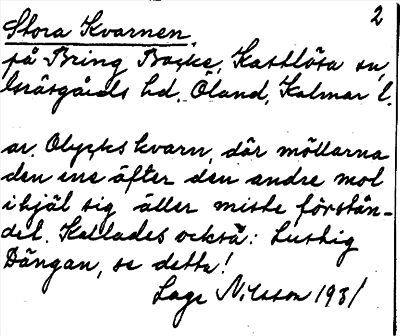 2
Stora Kvarnen,
på Bring Backe, Kastlösa sn,
gårds hd. Öland, Kalmar l.
ar. Olyckskvarn, där möllarna
den ene äfter den andre mol
ihjäl sig äller miste förstån-
det. Kallades också: Lustig
Dängan, se detta!
Lage Nilsson 1931